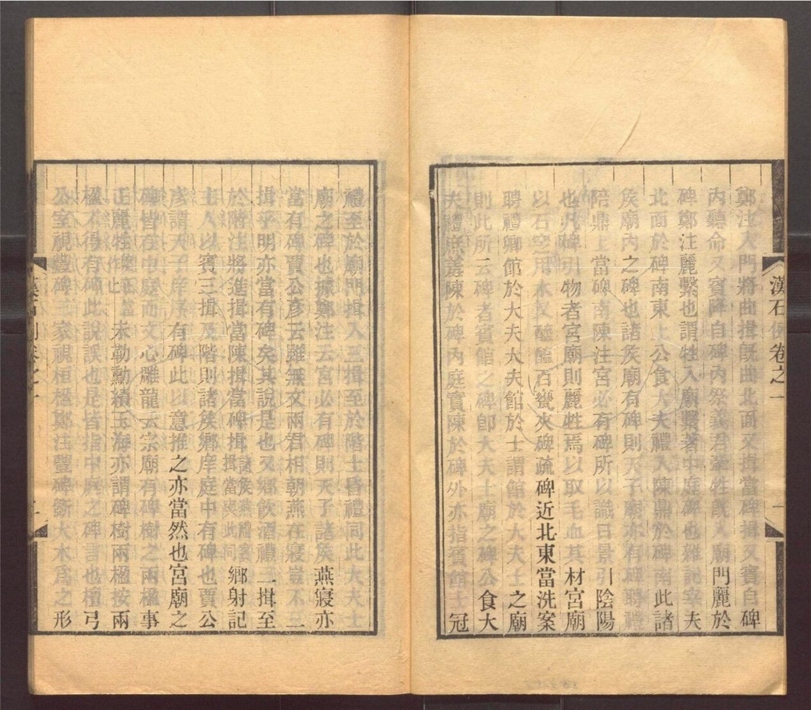 鄭注入門將曲揖旣曲北面又揖當碑揖又賓自碑
內聽命又賓降自碑內祭義君牽牲旣入廟門麗於
碑鄭注麗繫也謂牲入廟繫著中庭碑也雜記宰夫
北面於碑南東上公食大夫禮入陳鼎於碑南此諸
矦廟內之碑也諸矦廟有碑則天子廟亦有碑聘禮
陪鼎上當碑南陳注宮必有碑所以識日景引陰陽
也凡碑引物者宮廟則麗牲焉以取毛血其材宮廟
以石窆用木又醯醢百甕夾碑疏碑近北東當洗案
聘禮卿館於大夫大夫館於士謂館於大夫士之廟
則此所云碑者賓館之碑卽大夫士廟之碑公食大
夫禮庶羞陳於碑內庭實陳於碑外亦指賓館士冠
漢石例卷之一
一
禮至於廟門揖入三揖至於階士昏禮同此大夫士
廟之碑也據鄭注云宮必有碑則天子諸矦燕寢亦
當有碑賈公彥云雖無文兩君相朝燕在寢豈不三
揖乎明亦當有碑矣其說是也又鄉飲酒禮三揖至
於階注將進揖當陳揖當碑揖 鄉射記
主人以賓三揖及階則諸矦鄉庠庭中有碑也賈公
彥謂天子庠序有碑此以意推之亦當然也宮廟之
碑皆在中庭而文心雕龍云宗廟有碑樹之兩楹事
止麗牲 未勒勳績玉海亦謂碑樹兩楹按兩
楹不得有碑此說誤也是皆指中庭之碑言也檀弓
公室視豐碑三家視桓楹鄭注豐碑斲大木爲之形
漢石例卷之一
二